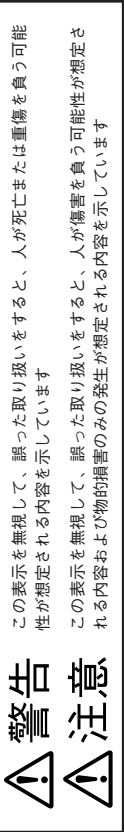 警告
この表示を無視して、誤った取り扱いをすると、人が死亡または重傷を負う可能
性が想定される内容を示しています
注意
この表示を無視して、誤った取り扱いをすると、人が傷害を負う可能性が想定さ
れる内容および物的損害のみの発生が想定される内容を示しています